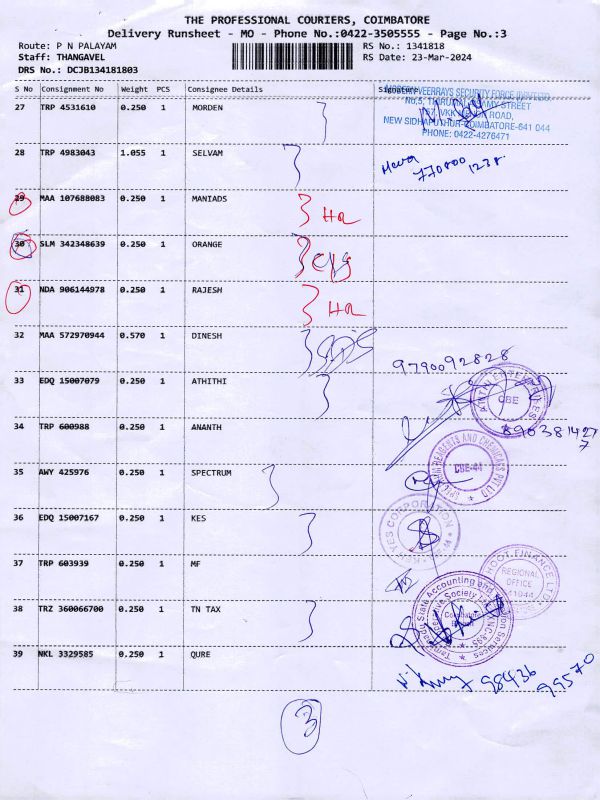 THE PROFESSIONAL COURIERS, COIMBATORE
Delivery Runsheet - MO - Phone No.:0422-3505555 - Page No.:3
Route: P N PALAYAM
RS No.: 1341818
Staff: THANGAVEL
RS Date: 23-Mar-2024
DRS No.: DCJB134181803
S No Consignment No Weight PCS Consignee Details
VEERRAYS SECURITY FORCE
STREET
ROAD,
NEW SIDHAPUTHUR-COIMBATORE-641 044
PHONE: 0422-4276471
27 TRP 4531610 0.250 1 MORDEN
28 TRP 4983043 1.055 1 SELVAM
770800 1238
29 MAA 107688083 0.250 1 MANIADS
30 SLM 342348639 0.250 1 ORANGE
31 NDA 906144978 0.250 1 RAJESH
32 MAA 572970944 0.570 1 DINESH
9790092828
33 EDQ 15007079 0.250 1 ATHITHI
CBE
34 TRP 600988 0.250 1 ANANTH
SPECTRUM REAGENTS AND CHEMICALS PVT LTD
CBE-44
35 AWY 425976 0.250 1 SPECTRUM
36 EDQ 15007167 0.250 1 KES
CORPORATION
37 TRP 603939 0.250 1 MF
FINANCE LTD
REGIONAL
OFFICE
38 TRZ 360066700 0.250 1 TN TAX
39 NKL 3329585 0.250 1 QURE
98436
99570
3